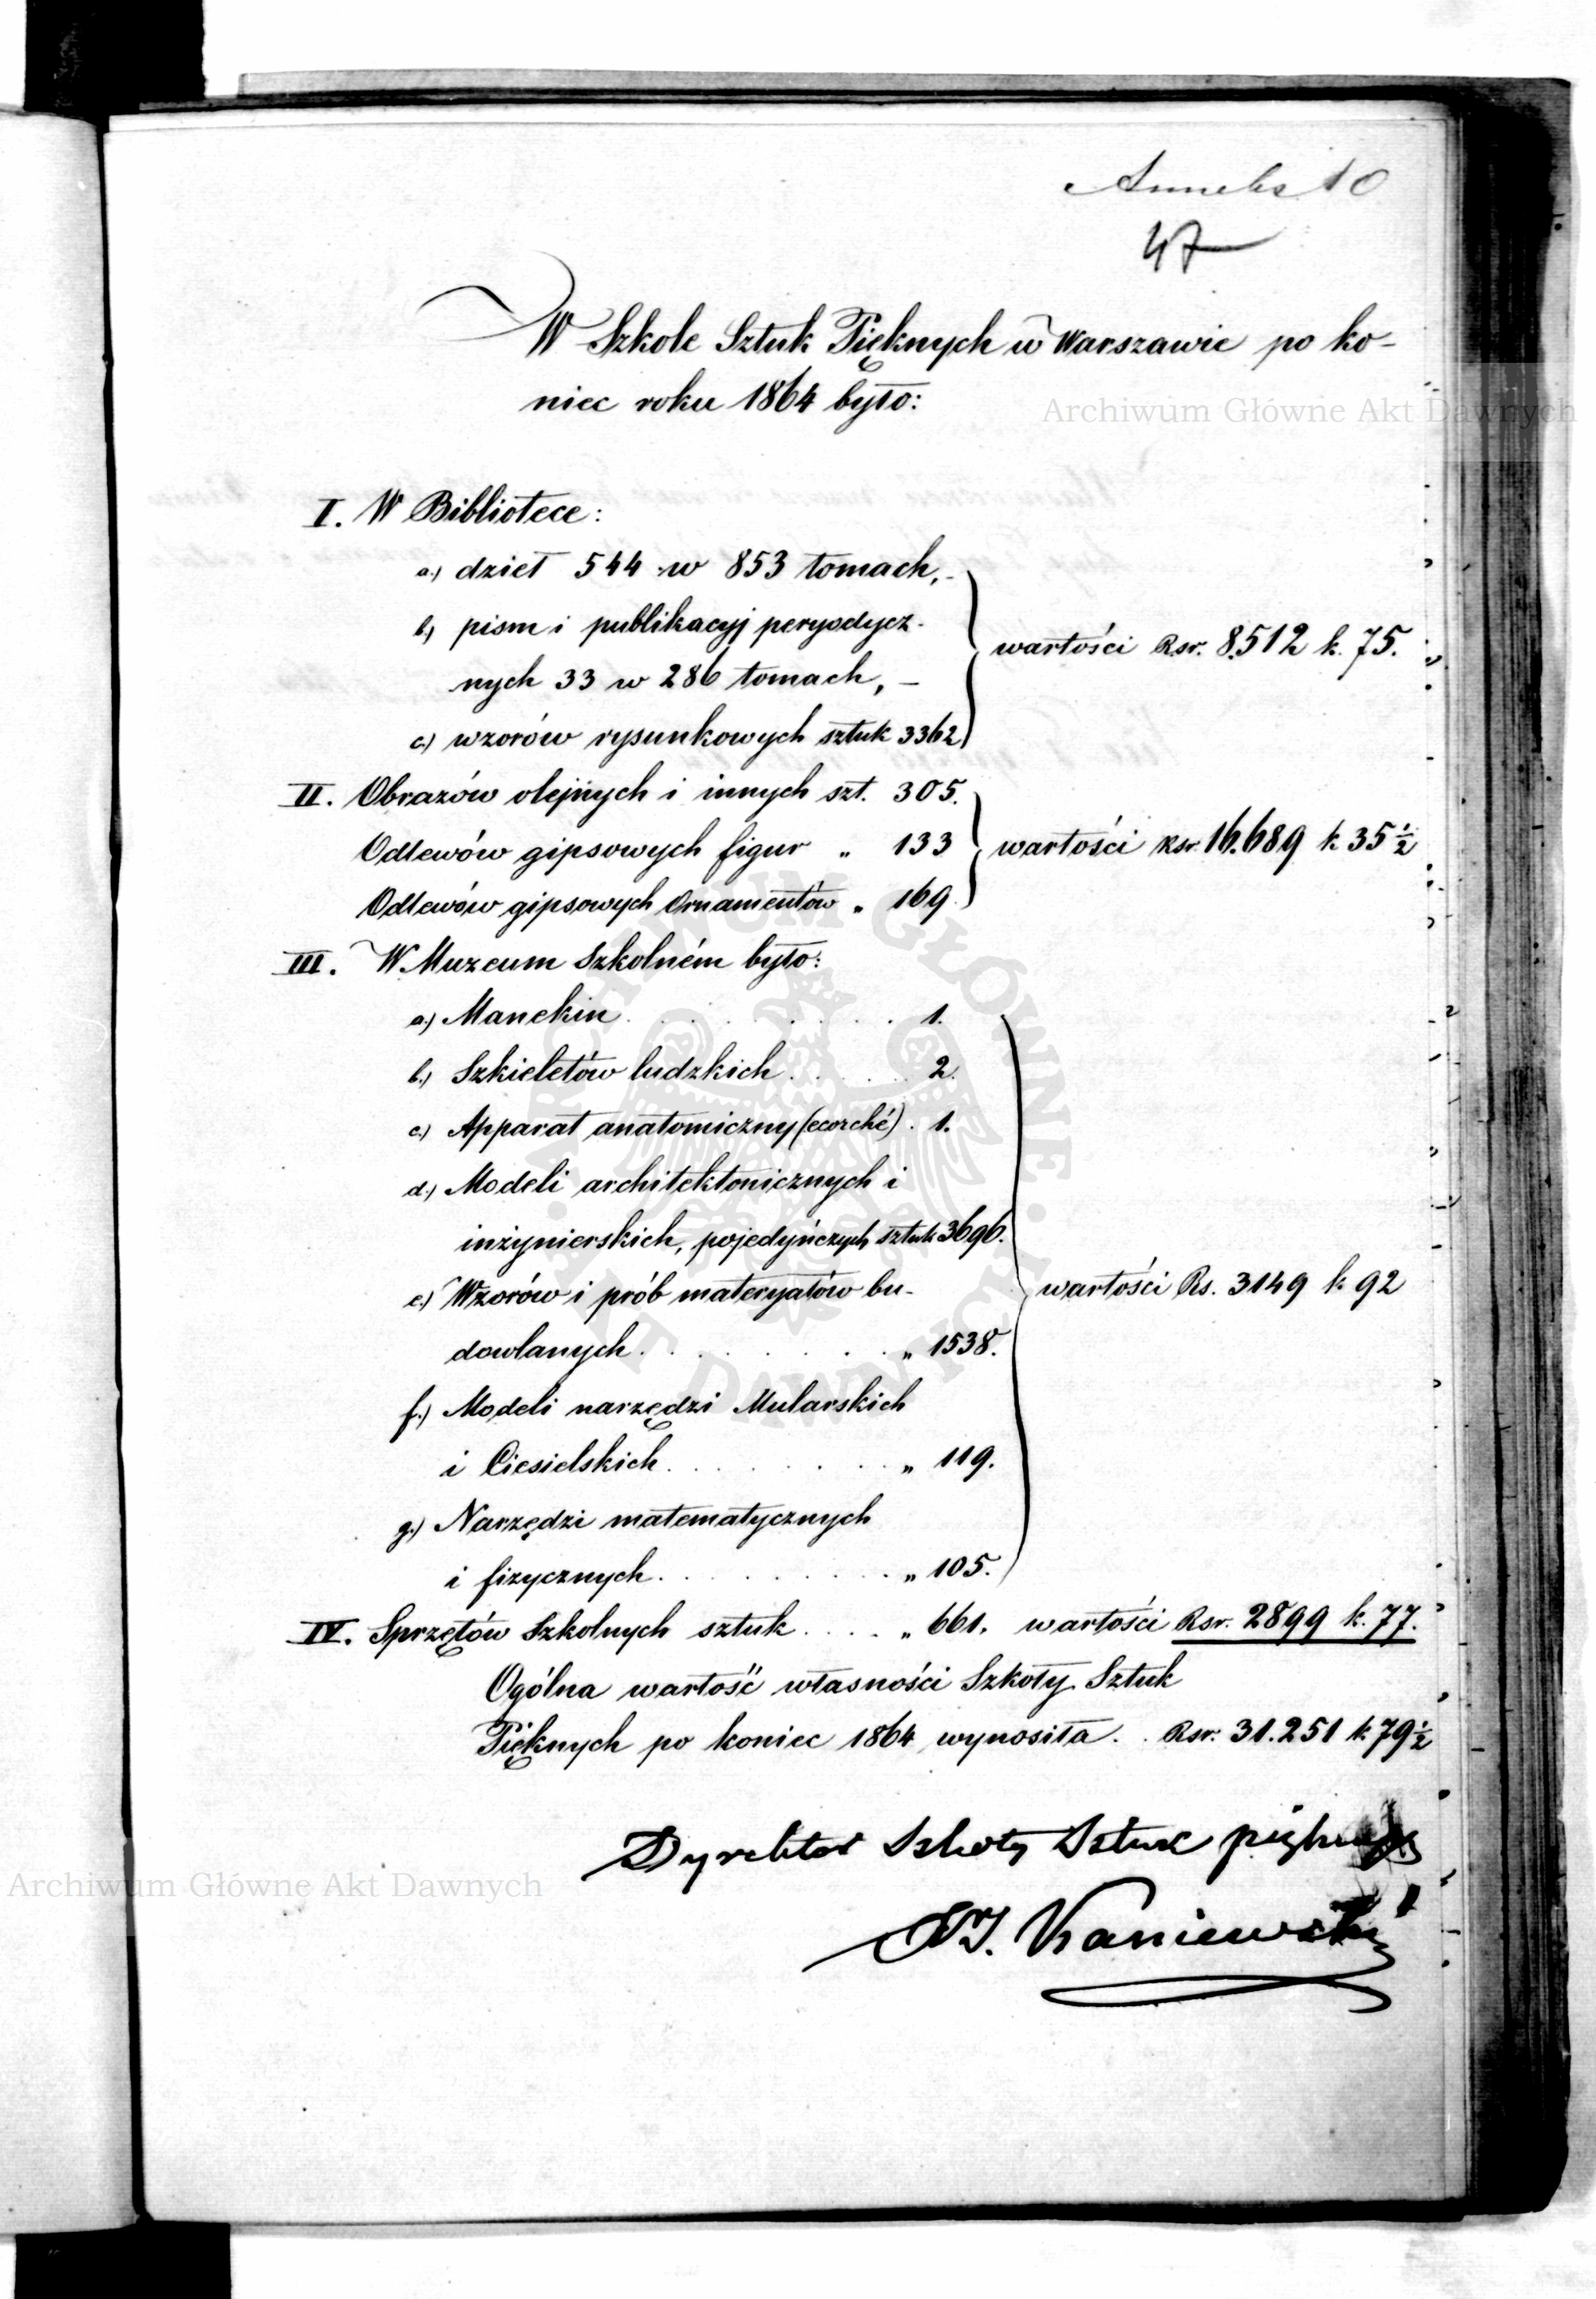 Anneks 10
47
W Szkole Sztuk Pięknych w Warszawie po ko-
niec roku 1864 było:
Archiwum Główne Akt Dawnych
I. W Bibliotece:
a.) dzieł 544 w 853 tomach,-
b.) pism i publikacyj peryodycz-
nych 33 w 286 tomach, -
wartości Rsr. 8.512 k. 75.
c.) wzorów rysunkowych sztuk 3362
II. Obrazów olejnych i innych szt. 305.
Odlewów gipsowych figur „ 133 wartości Rsr. 16.689 k 35 1/2
Odlewów gipsowych Ornamentów „ 169
III. W Muzeum Szkolném było:
a.) Manekin . . . . . . . . . 1.
b.) Szkieletów ludzkich . . . . . 2.
c.) Apparat anatomiczny (ecorché) . 1.
d.) Modeli architektonicznych i
inżynierskich, pojedyńczych sztuk 3696.
e.) Wzorów i prób materyałów bu-
wartości Rs. 3149 k 92
dowlanych . . . . . . . . „ 1538.
f.) Modeli narzędzi Mularskich
i Ciesielskich . . . . . . . „ 119.
g.) Narzędzi matematycznych
i fizycznych . . . . . . . . „ 105.
IV. Sprzętów Szkolnych sztuk . . . . „ 661. wartości Rsr. 2899 k. 77.
Ogólna wartość własności Szkoły Sztuk
Pięknych po koniec 1864 wynosiła . . Rsr. 31.251 k 79 1/2
Dyrektor Szkoły Sztuk pięknych
Archiwum Główne Akt Dawnych
Kaniewski
ARCHIWUM GŁÓWNE AKT DAWNYCH